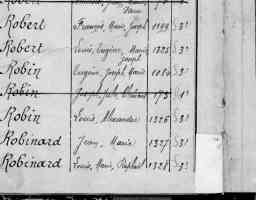 Robert François, Marie, Joseph 1199 3e
Robert Louis, Eugène, Marie 1325 3e
Joseph
Robin Eugène, Joseph, Marie 3e
Robin Joseph
Robin Louis, Alexandre 1326 3e
Robinard Jean, Marie 1327 3e
Robinard Louis, Marie, Raphaël 1328 3e